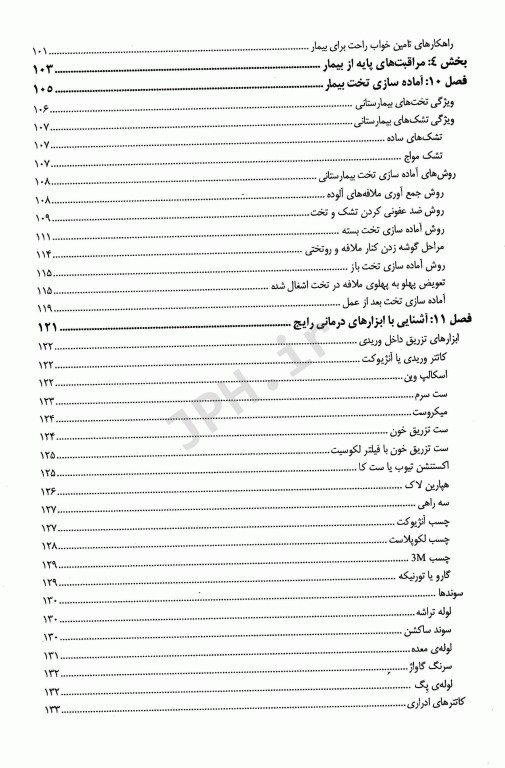 راهکارهای تأمین خواب راحت برای بیمار ........ ۱۰۱
بخش ٤: مراقبت‌های پایه از بیمار ........ ۱۰۳
فصل ۱۰: آماده سازی تخت بیمار ........ ۱۰۵
ویژگی تخت‌های بیمارستانی ........ ۱۰۶
ویژگی تشک‌های بیمارستانی ........ ۱۰۷
تشک‌های ساده ........ ۱۰۷
تشک مواج ........ ۱۰۷
روش‌های آماده سازی تخت بیمارستانی ........ ۱۰۸
روش جمع آوری ملافه‌های آلوده ........ ۱۰۸
روش ضد عفونی کردن تشک و تخت ........ ۱۰۹
روش آماده سازی تخت بسته ........ ۱۱۱
مراحل گوشه زدن کنار ملافه و روتختی ........ ۱۱۴
روش آماده سازی تخت باز ........ ۱۱۵
تعویض پهلو به پهلوی ملافه در تخت اشغال شده ........ ۱۱۵
آماده سازی تخت بعد از عمل ........ ۱۱۹
فصل ۱۱: آشنایی با ابزارهای درمانی رایج ........ ۱۲۱
ابزارهای تزریق داخل وریدی ........ ۱۲۲
کاتتر وریدی یا آنژیوکت ........ ۱۲۲
اسکالپ وین ........ ۱۲۲
ست سرم ........ ۱۲۳
میکروست ........ ۱۲۴
ست تزریق خون ........ ۱۲۴
ست تزریق خون با فیلتر لکوسیت ........ ۱۲۵
اکستنشن تیوب یا ست کا ........ ۱۲۵
هپارین لاک ........ ۱۲۶
سه راهی ........ ۱۲۷
چسب آنژیوکت ........ ۱۲۷
چسب لکوپلاست ........ ۱۲۸
چسب 3M ........ ۱۲۹
گارو یا تورنیکه ........ ۱۲۹
سوندها ........ ۱۳۰
لوله تراشه ........ ۱۳۰
سوند ساکشن ........ ۱۳۰
لوله‌ی معده ........ ۱۳۱
سرنگ گاواژ ........ ۱۳۲
لوله‌ی پگ ........ ۱۳۲
کاتترهای ادراری ........ ۱۳۳
JPH.ir